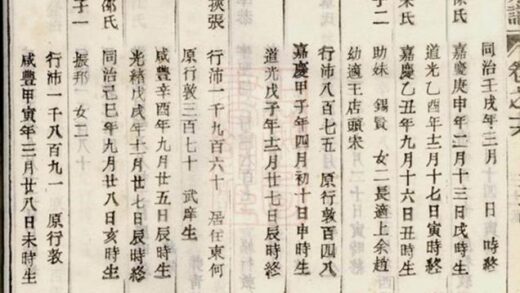 同治壬戌年三月 日 寅時終
嘉慶庚申年二月十三日戌時生
道光乙酉年十二月十七日寅時終
嘉慶乙丑年九月十六日丑時生
子二 助妹 錫賢 女二長適上余趙
幼適王店頭宋
行沛八百七五 原行敦百四八
嘉慶甲子年四月初十日申時生
道光戊子年十二月廿七日辰時終
行沛一千九百六十 居任東何
原行敦三百七十 武庠生
咸豐辛酉年九月廿五日辰時生
光緒戊戌年十一月廿七日辰時終
邵氏 同治己巳年九月廿八日亥時生
子一 振邦 女二
行沛一千八百九一 原行敦
咸豐甲寅年三月廿八日未時生